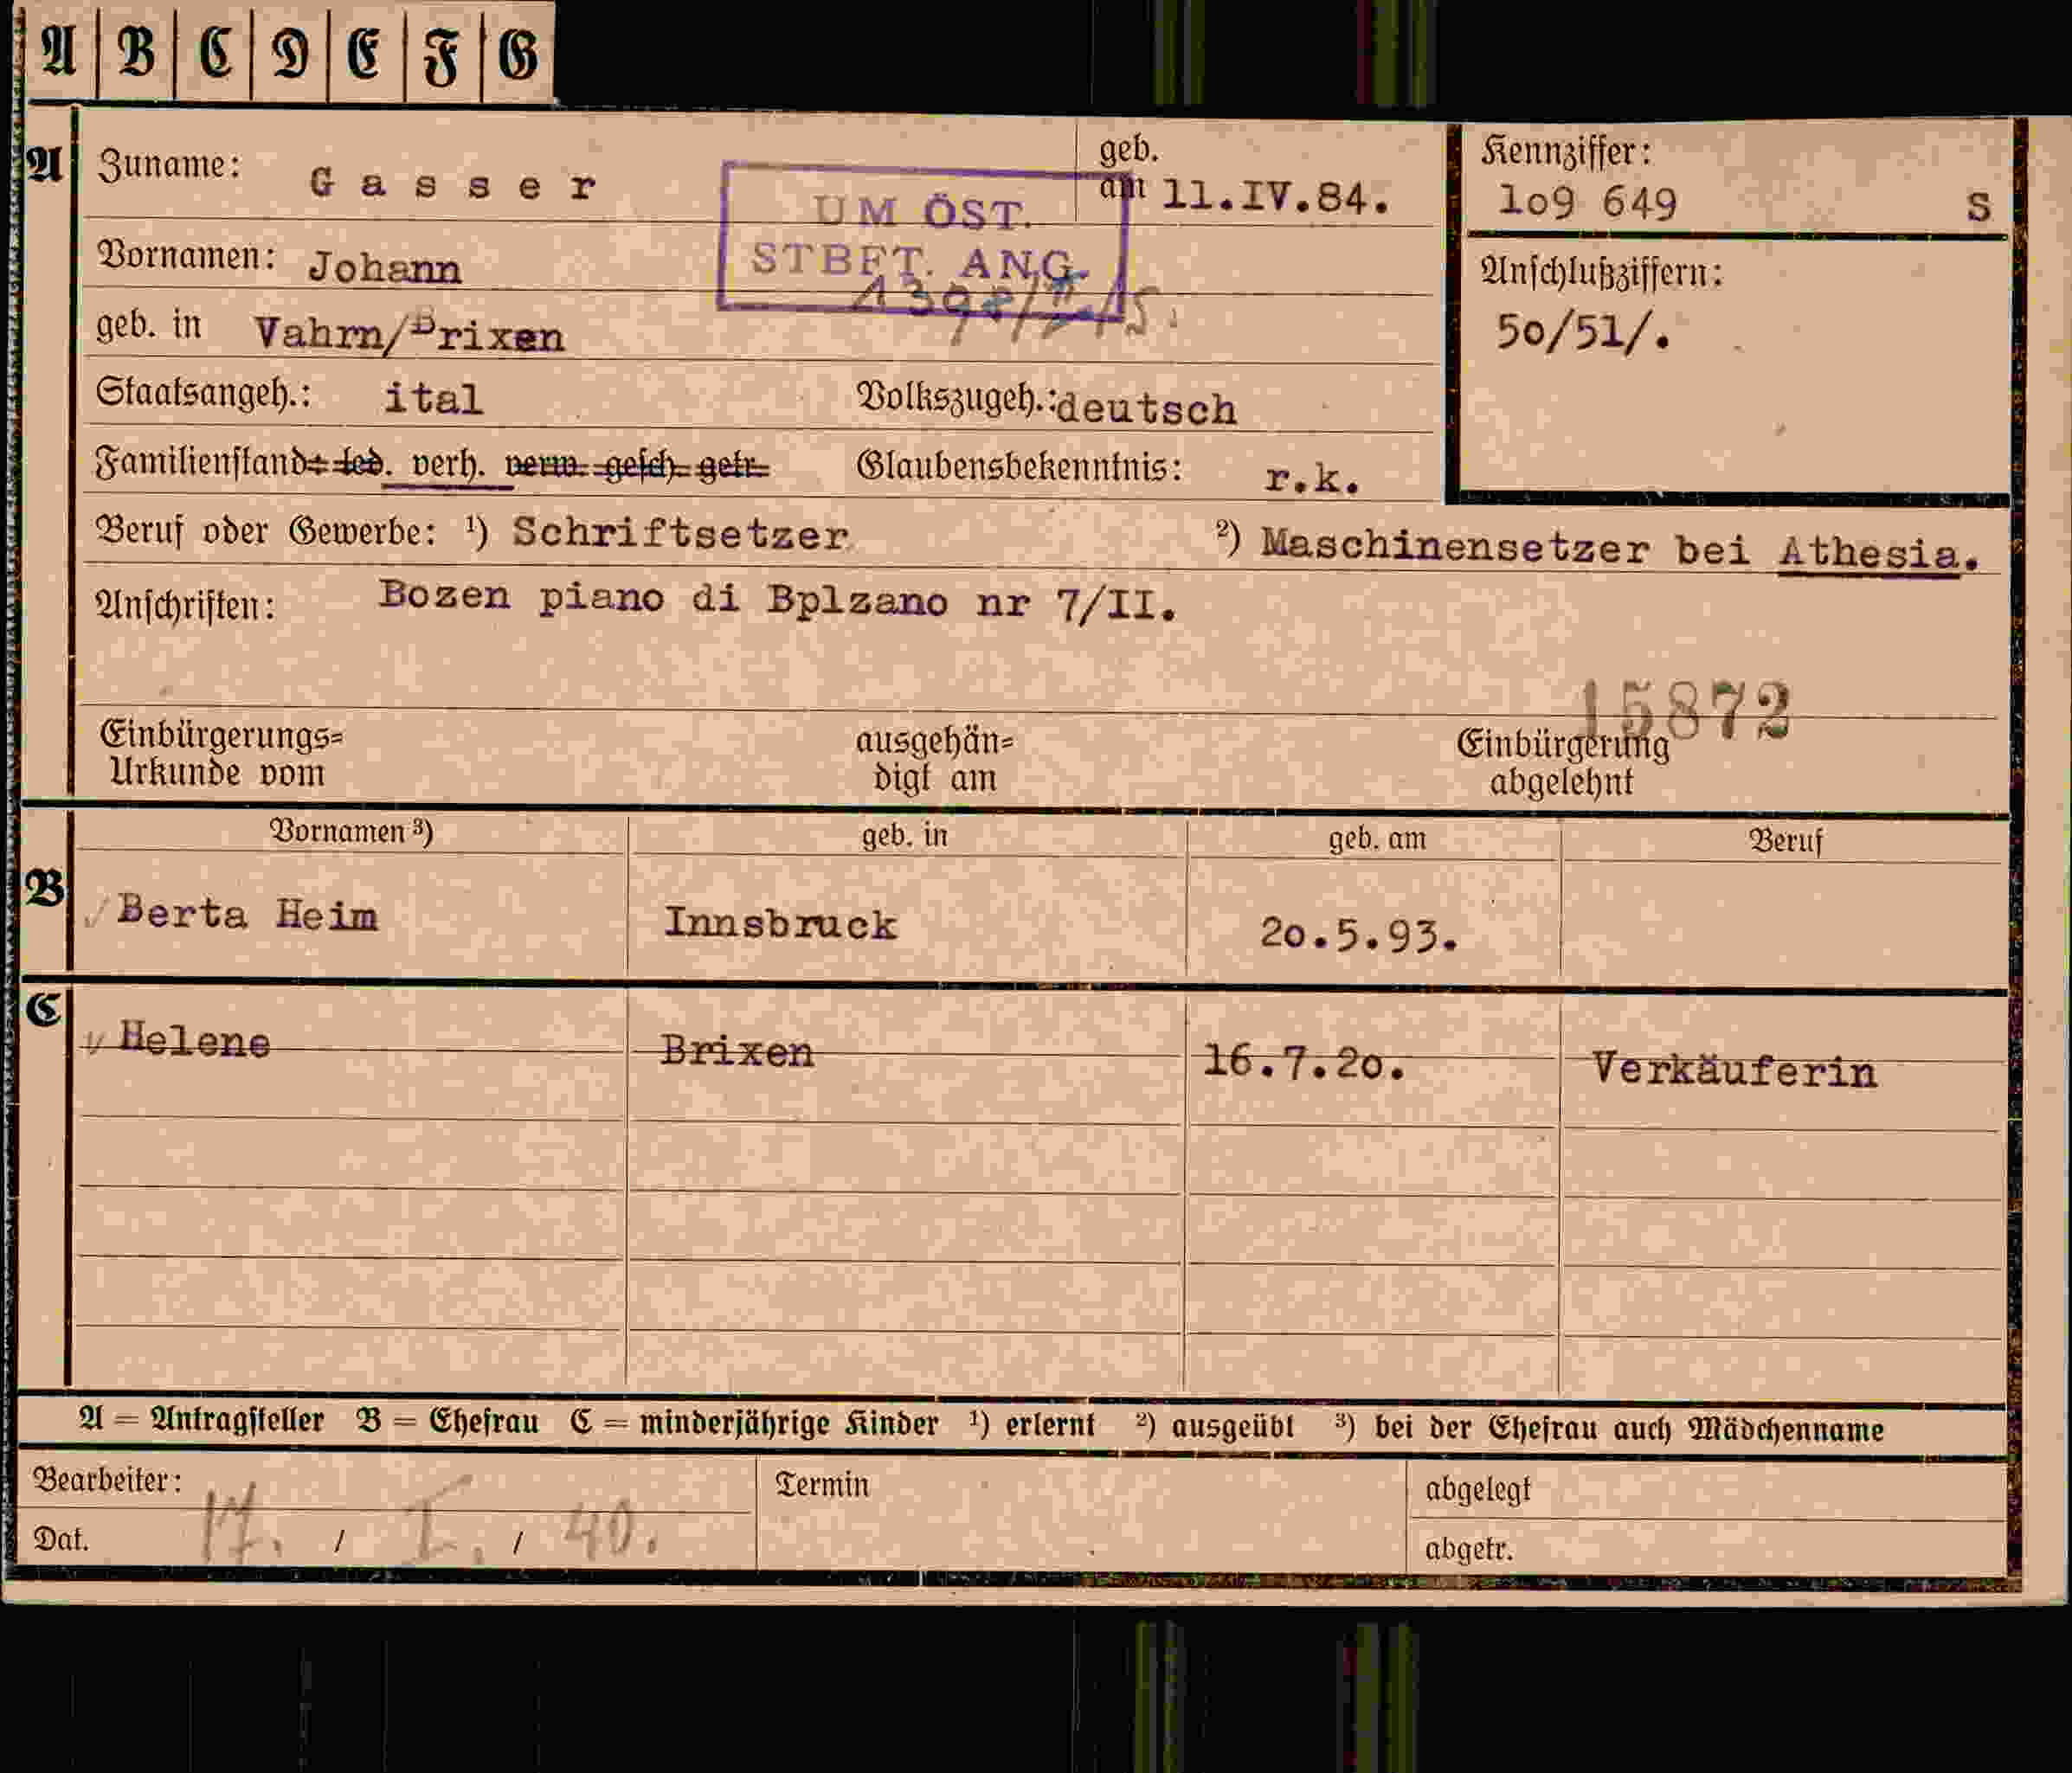 A B C D E F G
A Zuname: Gasser geb. am 11.IV.84. Kennziffer:
1o9 649 S
UM ÖST.
STBET. ANG.
Vornamen: Johann Anschlußziffern:
geb. in Vahrn/Brixen 5o/51/.
Staatsangeh.: ital Volkszugeh.: deutsch
Familienstand: led. verh. verw. gesch. getr. Glaubensbekenntnis: r.k.
Beruf oder Gewerbe: ¹) Schriftsetzer ²) Maschinensetzer bei Athesia.
Anschriften: Bozen piano di Bplzano nr 7/II.
15872
Einbürgerungs= ausgehän= Einbürgerung
Urkunde vom digt am abgelehnt
Vornamen ³) geb. in geb. am Beruf
B Berta Heim Innsbruck 2o.5.93.
C Helene Brixen 16.7.2o. Verkäuferin
A = Antragsteller B = Ehefrau C = minderjährige Kinder ¹) erlernt ²) ausgeübt ³) bei der Ehefrau auch Mädchenname
Bearbeiter: Termin abgelegt
Dat. 17. / I. / 40. abgetr.